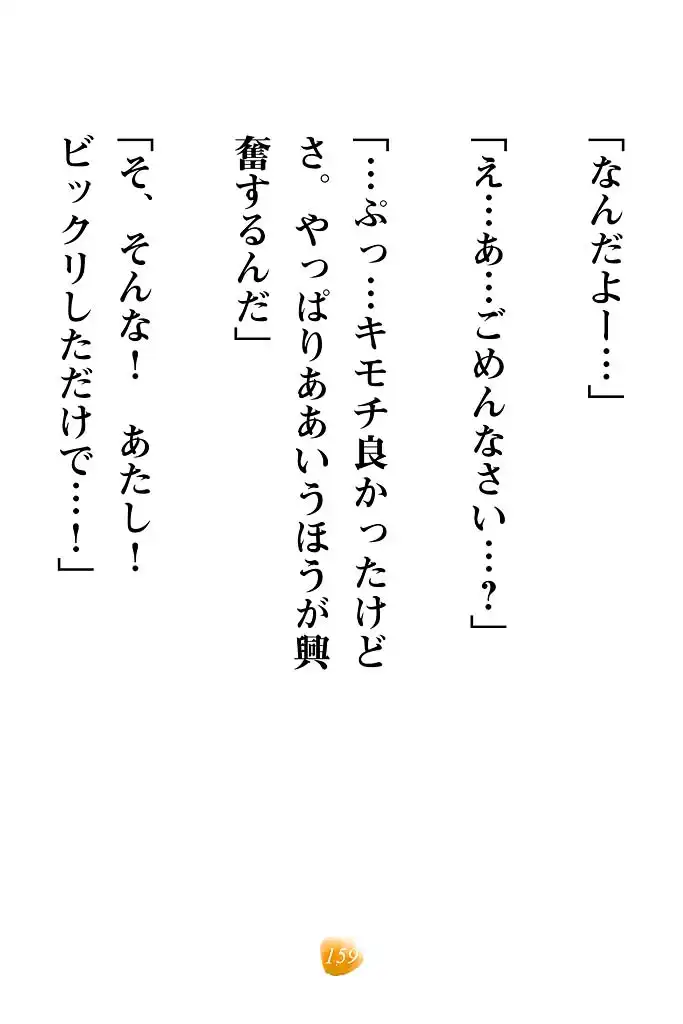 「なんだよー…」
「え…あ…ごめんなさい…？」
「…ぷっ…キモチ良かったけど
さ。やっぱりああいうほうが興
奮するんだ」
「そ、そんな！　あたし！
ビックリしただけで…！」
159